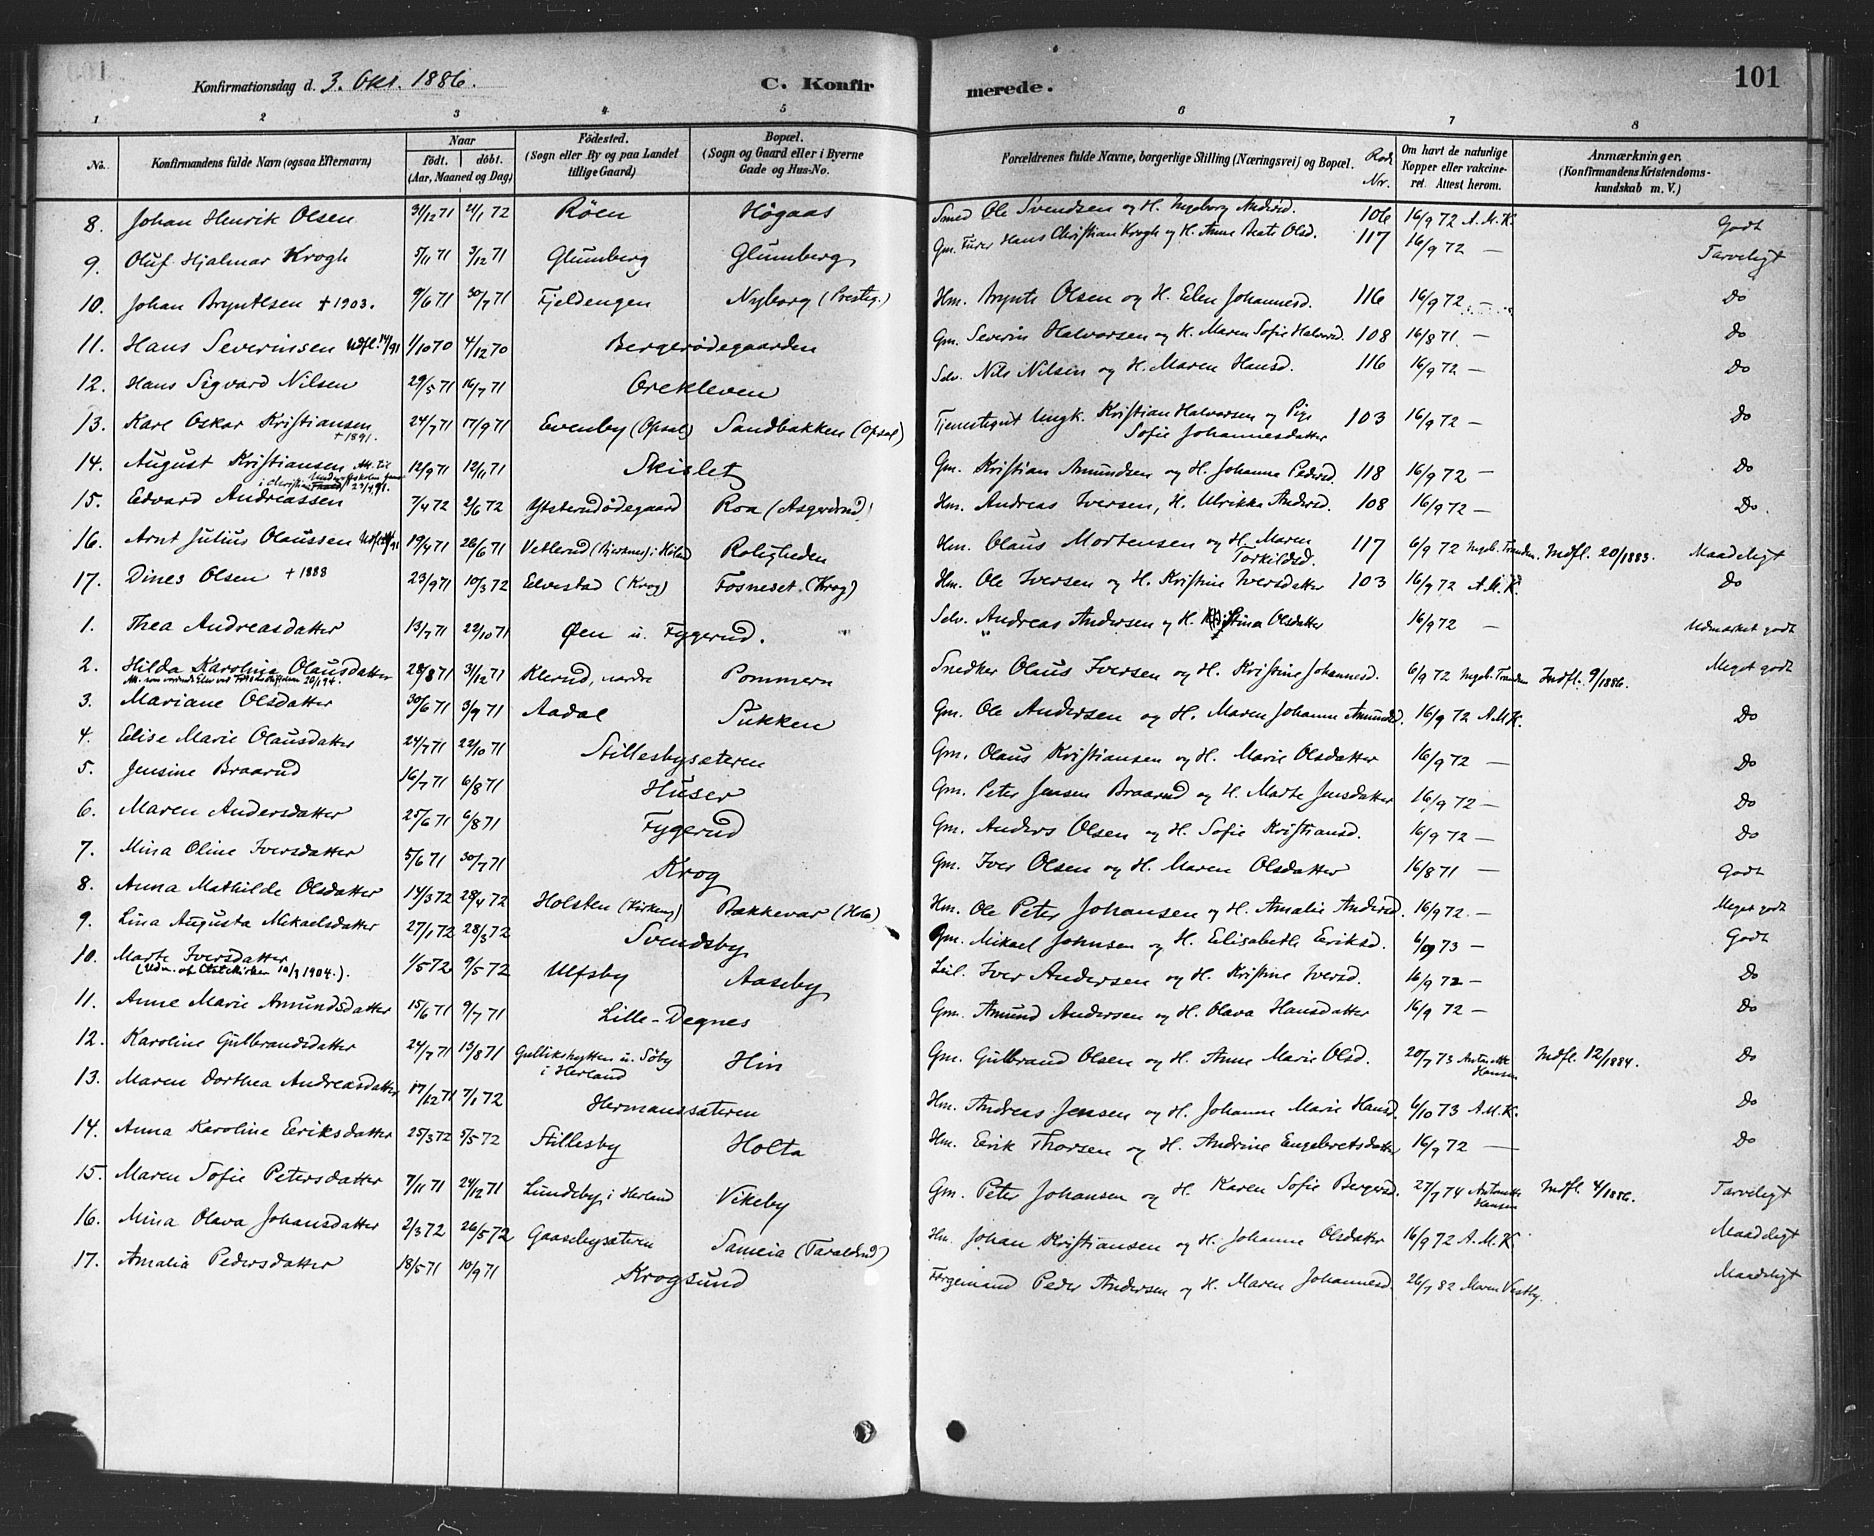 Konfirmationsdag d. 3. Okt. 1886. C. Konfirmerede. 101
1 2 3 4 5 6 7 8
No. Konfirmandens fulde Navn (ogsaa Efternavn) Naar født. døbt. (Aar, Maaned og Dag) Födested. (Sogn eller By og paa Landet tillige Gaard) Bopæl. (Sogn og Gaard eller i Byerne Gade og Hus-No. Forældrenes fulde Navne, borgerlige Stilling (Næringsvei) og Bopæl. Rode Nr. Om havt de naturlige Kopper eller vakcineret. Attest herom. Anmærkninger. (Konfirmandens Kristendomskundskab m. V.)
8. Johan Henrik Olsen 31/12 71 21/1 72 Röen Högaas Smed Ole Svendsen og H. Ingeborg Andersd. 106 16/9 72 A.M.K. Godt
9. Oluf Hjalmar Krogh 5/11 71 3/12 71 Glumberg Glumberg Gm. Furer Hans Christian Krogh og H. Anne Beate Olsd. 117 16/9 72 — Tarveligt
10. Johan Bryntlsen + 1903. 9/6 71 30/7 71 Fjeldengen Nyborg (Presteg.) Hm. Brynte Olsen og H. Elen Johannesd. 116 16/9 72 — Do
11. Hans Severinsen Udfl. 14/91 1/10 70 4/12 70 Bergerödegaarden Gm. Severin Halvorsen og H. Maren Sofie Halvorsd. 108 16/8 71 — Do
12. Hans Sigvard Nilsen 29/5 71 16/7 71 Orekleven Selv. Nils Nilsen og H. Maren Hansd. 116 16/9 72 — Do
13. Karl Oskar Kristiansen + 1891. 24/7 71 17/9 71 Evenby (Opsal) Sandbakken (Opsal) Tjenestegut Ungk. Kristian Halvorsen og Pige Sofie Johannesdatter 103 16/9 72 — Do
14. August Kristiansen 12/9 71 12/11 71 Skislet Gm. Kristian Amundsen og H. Johanne Pedersd. 118 16/9 72 — Do
15. Edvard Andreassen 7/4 72 2/6 72 Ytsterudödegaard Roa (Asgerdrud) Hm. Andreas Iversen, H. Ulrikke Andersd. 108 16/9 72 — Do.
16. Arnt Julius Olaussen 19/4 71 26/6 71 Vetlerud (Bjerknes) i Höland Roligheden Hm. Olaus Mortensen og H. Maren Torkildsd. 117 6/9 72 Ingeb. Tranden. Indfl. 20/1883. Maadeligt
17. Dines Olsen + 1888 23/9 71 10/3 72 Elvestad (Krog) Fosneset (Krog) Hm. Ole Iversen og H. Kristine Iversdatter 103 16/9 72 A.M.K. Do
1. Thea Andreasdatter 13/7 71 22/10 71 Øen u. Fygerud. Selv. Andreas Andersen og H. Kristina Olsdatter 16/9 72 — Udmærket godt
2. Hilda Karoline Olausdatter 28/8 71 31/12 71 Klerud, nordre Pommern Snedker Olaus Iversen og H. Kristine Johannesd. 6/9 72 Ingeb. Tranden Indfl. 9/1886. Meget godt
3. Mariane Olsdatter 30/6 71 3/9 71 Aadal Sukken Gm. Ole Andersen og H. Maren Johanne Amundsd. 16/9 72 A.M.K. Do
4. Elise Marie Olausdatter 24/7 71 22/10 71 Stillesbysæteren Gm. Olaus Kristiansen og H. Marie Olsdatter 16/9 72 — Do
5. Jensine Braarud 16/7 71 6/8 71 Huser Gm. Peter Jensen Braarud og H. Marte Jensdatter 16/9 72 — Do
6. Maren Andersdatter 25/6 71 6/8 71 Fygerud Gm. Anders Olsen og H. Sofie Kristiansd. 16/9 72 — Do
7. Mina Oline Iversdatter 5/6 71 30/7 71 Krog Gm. Iver Olsen og H. Maren Olsdatter 16/8 71 Godt
8. Anna Mathilde Olsdatter 14/3 72 28/4 72 Holsten (Kirkeng) Bækkevar Hm. Ole Peter Johansen og H. Amalie Andersd. 16/9 72 — Meget godt
9. Lina Augusta Mikaelsdatter 27/1 72 28/3 72 Svendsby Gm. Mikael Johnsen og H. Elisabeth Eriksd. 73 — Godt
10. Marte Iversdatter (Udm. af Statskirken 10/9 1904.) 1/5 72 9/5 72 Ulfsby Aaseby Leil. Iver Andersen og H. Kristine Iversd. 16/9 72 — Do
11. Anne Marie Amundsdatter 15/6 71 9/7 71 Lille-Degnes Gm. Amund Andersen og H. Olava Hansdatter 16/9 72 — Do
12. Karoline Gulbrandsdatter 24/7 71 13/8 71 Gullikshytten u. Söby i Herland Hin Gm. Gulbrand Olsen og H. Anne Marie Olsd. 20/7 73 Hansen Indfl. 12/1884. Do
13. Maren Dorthea Andreasdatter 17/12 71 7/1 72 Hermanssæteren Hm. Andreas Jensen og H. Johanne Marie Hansd. 6/10 73 A.M.K. Do
14. Anna Karoline Eeriksdatter 25/3 72 5/5 72 Stillesby Holta Hm. Eerik Thorsen og H. Andrine Engebretsdatter 16/9 72 — Do
15. Maren Sofie Petersdatter 7/11 71 24/12 71 Lundeby, i Herland Vikeby Gm. Peter Johansen og H. Karen Sofie Bergersd. 27/7 74 Hansen Indfl. 4/1886. Tarveligt
16. Mina Olava Johansdatter 2/3 72 26/5 72 Gaasebysæteren Sameia (Taraldrud) Hm. Johan Kristiansen og H. Johanne Olsdatter 16/9 72 A.M.K. Maadeligt
17. Amalia Pedersdatter 18/5 71 10/9 71 Krogsund Færgemand Peder Andersen og H. Maren Johannesd. 26/7 82 Maren Vestby. Maadeligt